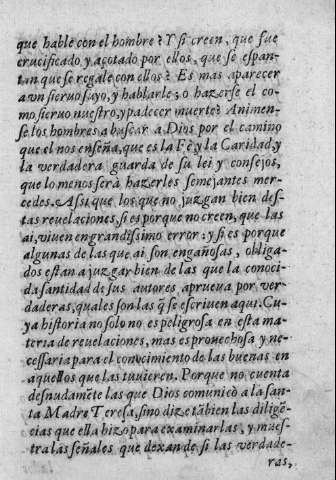 que hable con el hombre? Y si creen, que fue
crucificado, y açotado por ellos, que se espan-
tan que se regale con ellos? Es mas aparecer
a vn sieruo suyo, y hablarle; o hazerse el co-
mo sieruo nuestro, y padecer muerte? Animen-
se los hombres a buscar a Dios por el camino
que el nos enseña, que es la Fè, y la Caridad, y
la verdadera guarda de su lei y consejos,
que lo menos serà hazerles semejantes mer-
cedes. Assi que, los que no juzgan bien des-
tas reuelaciones, si es porque no creen, que las
ai, viuen en grandissimo error: y si es porque
algunas de las que ai son engañosas, obliga-
dos estan a juzgar bien de las que la conoci-
da santidad de sus autores, aprueua por ver-
daderas, quales son las q̃ se escriuen aqui. Cu-
ya historia no solo no es peligrosa en esta ma-
teria de reuelaciones, mas es prouechosa y ne-
cessaria para el conocimiento de las buenas en
aquellos que las tuuieren. Porque no cuenta
desnudamẽte las que Dios comunicò a la san-
ta Madre Teresa, sino dize tãbien las diligẽ-
cias que ella hizo para examinarlas, y mues-
tra las señales que dexan de si las verdade-
ras,